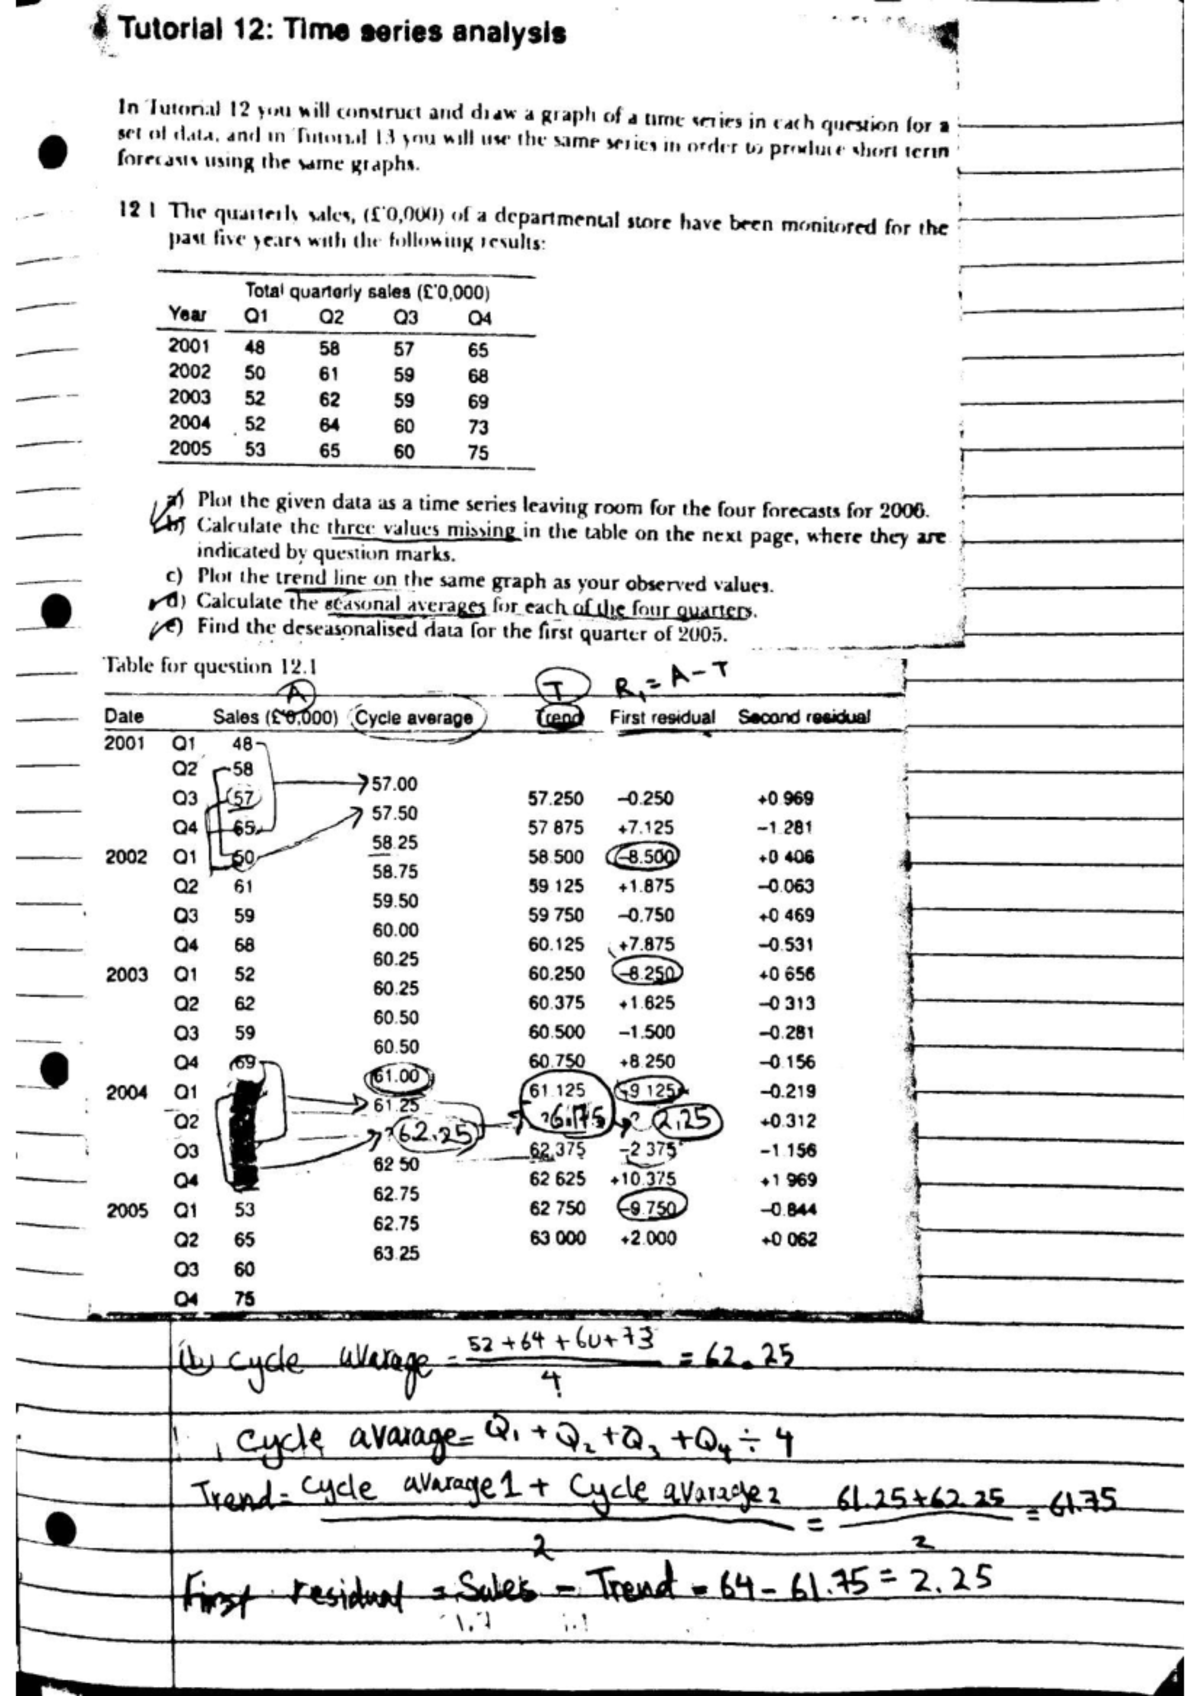 Tutorial 12: Time series analysis
In Tutorial 12 you will construct and draw a graph of a time series in each question for a
set of data, and in Tutorial 13 you will use the same series in order to produce short term
forecasts using the same graphs.
12 1 The quarterly sales, (£'0,000) of a departmental store have been monitored for the
past five years with the following results:
Total quarterly sales (£'0,000)
Year Q1 Q2 Q3 Q4
2001 48 58 57 65
2002 50 61 59 68
2003 52 62 59 69
2004 52 64 60 73
2005 53 65 60 75
a) Plot the given data as a time series leaving room for the four forecasts for 2006.
b) Calculate the three values missing in the table on the next page, where they are
indicated by question marks.
c) Plot the trend line on the same graph as your observed values.
d) Calculate the seasonal averages for each of the four quarters.
e) Find the deseasonalised data for the first quarter of 2005.
Table for question 12.1
A T R₁ = A - T
Date Sales (£'0,000) Cycle average Trend First residual Second residual
2001 Q1 48
Q2 58
57.00
Q3 57 57.250 -0.250 +0 969
57.50
Q4 65 57 875 +7.125 -1.281
58.25
2002 Q1 50 58.500 -8.500 +0 406
58.75
Q2 61 59 125 +1.875 -0.063
59.50
Q3 59 59 750 -0.750 +0 469
60.00
Q4 68 60.125 +7.875 -0.531
60.25
2003 Q1 52 60.250 -8.250 +0 656
60.25
Q2 62 60.375 +1.625 -0 313
60.50
Q3 59 60.500 -1.500 -0.281
60.50
Q4 69 60.750 +8 250 -0.156
61.00
2004 Q1 61.125 -9 125 -0.219
61.25
Q2 ? ? 2.25 +0.312
? 62.25
Q3 62.375 -2 375 -1.156
62 50
Q4 62 625 +10.375 +1 969
62.75
2005 Q1 53 62 750 -9.750 -0.844
62.75
Q2 65 63 000 +2.000 +0 062
63.25
Q3 60
Q4 75
(b) cycle avarage = 52 + 64 + 60 + 73 / 4 = 62.25
Cycle avarage = Q₁ + Q₂ + Q₃ + Q₄ ÷ 4
Trend = Cycle avarage 1 + Cycle avarage 2 / 2 = 61.25 + 62.25 / 2 = 61.75
First residual = Sales - Trend = 64 - 61.75 = 2.25